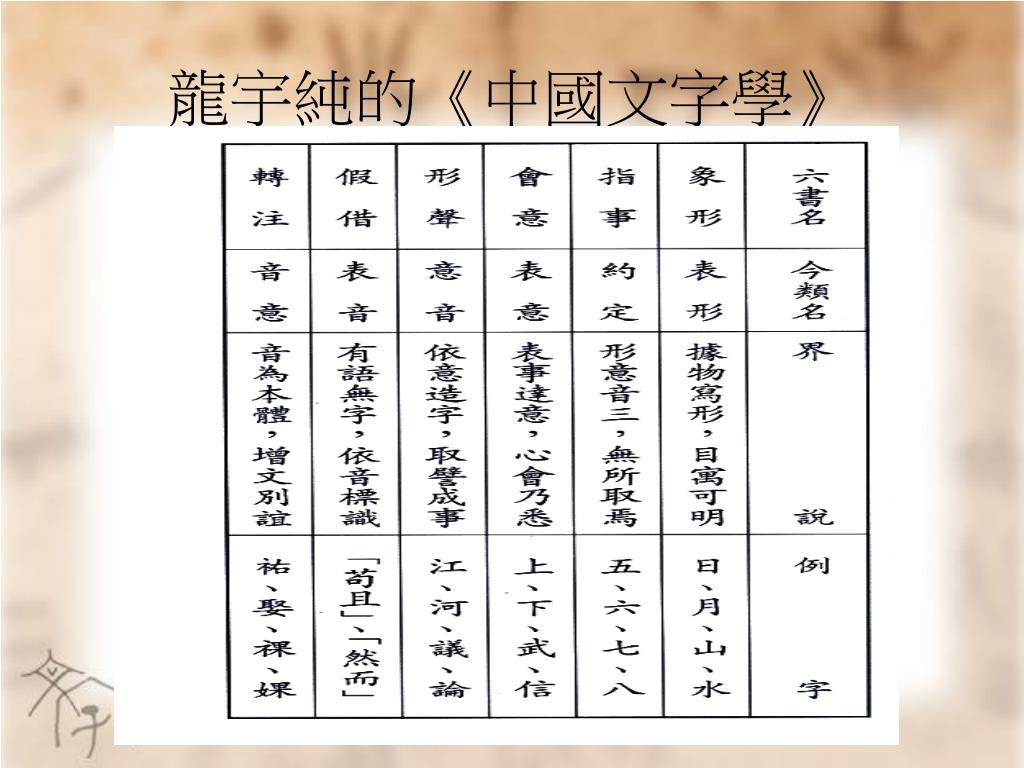 龍宇純的《中國文字學》
六書名
今類名
界說
例字
象形
表形
據物寫形，目寓可明
日、月、山、水
指事
約定
形意音三，無所取焉
五、六、七、八
會意
表意
表事達意，心會乃悉
上、下、武、信
形聲
意音
依意造字，取譬成事
江、河、議、論
假借
表音
有語無字，依音標識
「苟且」、「然而」
轉注
音意
音為本體，增文別誼
祐、娶、祼、婐